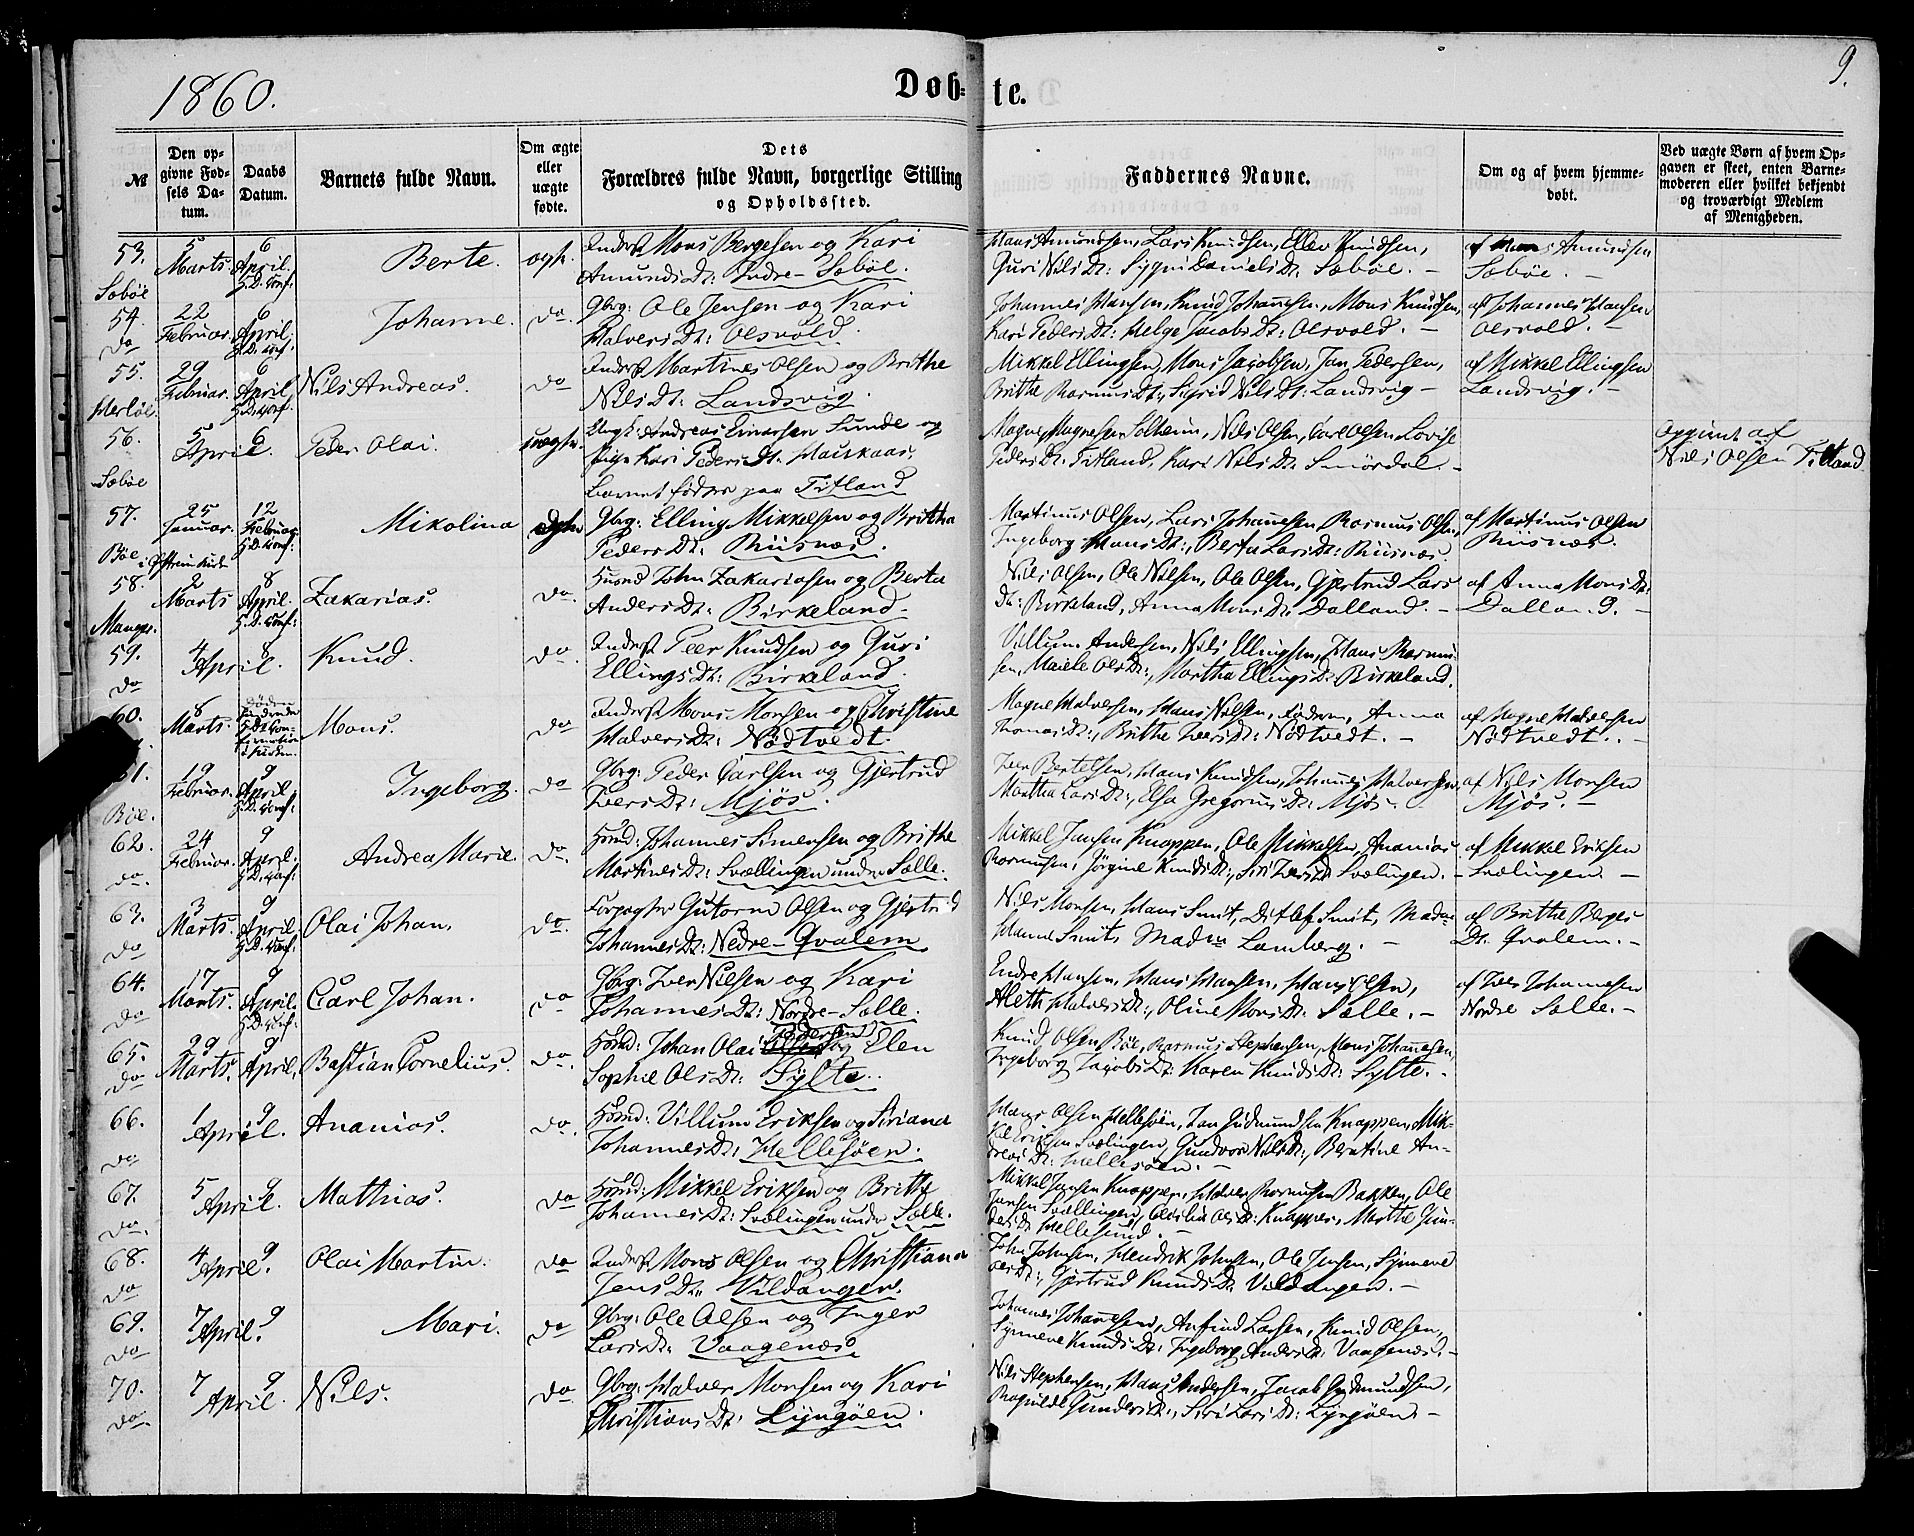 1860.
Døb-
te.
9.
№
Den op-
givne Fød-
sels Da-
tum.
Daabs
Datum.
Barnets fulde Navn.
Om ægte
eller
uægte
fødte.
Dets
Forældres fulde Navn, borgerlige Stilling
og Opholdssted.
Faddernes Navne.
Om og af hvem hjemme-
døbt.
Ved uægte Børn af hvem Op-
gaven er skeet, enten Barne-
moderen eller hvilket bekjendt
og troværdigt Medlem
af Menigheden.
53.
Sæbøe
5
Marts
6
April.
H.D. Conf:
Berte.
ægt.
Inderst Mons Bergesen og Kari
Amunds Dt: Indre-Sæbøe.
Hans Amundsen, Lars Knudsen, Ellev Knudsen,
Guri Nils Dt: Sygni Daniels Dt: Sæbøe. -
af Amundsen
Sæbøe. -
54.
do
22
Februar.
6
April.
H.D. Conf:
Johanne.
do.
Gbrg: Ole Jensen og Kari
Halvers Dt: Olsvold.
Johannes Hansen, Knud Johannesen, Mons Knudsen,
Kari Peders Dt: Helge Jacobs Dt: Olsvold. -
af Johannes Hansen
Olsvold. -
55.
Herløe
29
Februar.
6
April
H.D. Conf:
Nils Andreas.
do
Inderst Martines Olsen og Brithe
Nils Dt: Landsvig.
Mikkel Ellingsen, Mons Jacobsen, Jan Pedersen,
Brithe Rasmus Dt:, Sigrid Nils Dt: Landsvig -
af Mikkel Ellingsen
Landsvig. -
56.
Sæbøe
5
April.
6
Peder Olai.
uægte.
Ungk: Andreas Einarsen Sunde og
Pige Kari Peders Dt. Hauskaas.
Barnet født paa Titland
Magne Magnesen Solheim, Nils Olsen, Carl Olsen, Lovise
Peders Dt: Titland, Kari Nils Dt: Smørdal -
Opgivet af
Nils Olsen Titland.
57.
Bøe
25
Januar.
12
Februar
H.D. Conf:
Mikolina
ægte
Gbrg: Elling Mikkelsen og Britha
Peders Dt: Riisnæs.
Martinus Olsen, Lars Johannesen, Rasmus Olsen,
Ingeborg Hans Dt:, Berte Lars Dt: Riisnæs
af Martinus Olsen
Riisnæs.
58.
Manger.
2
Marts
8
April.
H.D. Conf:
Zakarias.
do.
Huusmd John Zakariasen og Berta
Anders Dt: Birkeland.
Nils Olsen, Ole Nilsen, Ole Olsen, Gjertrud Lars
Dt: Birkeland, Anna Mons Dt: Dalland. -
af Anna Mons Dt:
Dalland. -
59.
do
4
April.
8
Knud.
do
Inderst Peer Knudsen og Guri
Ellings Dt: Birkeland.
Villum Andersen, Nils Ellingsen, Hans Rasmus-
sen, Marie Ols Dt:, Martha Ellings Dt: Birkeland.
60.
8
Marts.
Mons.
do
Inderst Mons Monsen og Christine
Halvers Dt: Nødtvedt.
Magne Halversen, Hans Nilsen, Faderen, Anna
Thomas Dt:, Brithe Ivers Dt: Nødtvedt. -
af Magne Halversen
Nødtvedt. -
61.
Bøe.
19
Februar.
9
April
H.D. Conf:
Ingeborg.
do
Gbrg: Peder Carlsen og Gjertrud
Ivers Dt: Mjøs.
Iver Bertelsen, Hans Knudsen, Johannes Halversen,
Martha Lars Dt:, Elsa Gregorius Dt: Mjøs. -
af Nils Monsen
Mjøs. -
62.
do.
24
Februar.
9
April.
H.D. Conf:
Andrea Marie.
do.
Huusmd: Johannes Simensen og Brithe
Martines Dt: Svællingen under Sælle.
Mikkel Jansen Knappen, Ole Mikkelsen, Ananias
Rasmusen, Jørgine Knuds Dt:, Siri Ivers Dt Svælingen. -
af Mikkel Eriksen
Svælingen. -
63.
do
3
Marts.
9
April.
H.D. Conf:
Olai Johan.
do.
Forpagter Gutorm Olsen og Gjertrud
Johannes Dt: Nedre-Qvalem
Nils Monsen, Hans Smit, Ditlef Smit, Mada:
Hanna Smit, Mada: Lamberg. -
af Brithe Børges
Dt. Qvalem. -
64.
do
17
Marts.
9
April.
H.D. Conf:
Carl Johan.
do
Gbrg: Iver Nilsen og Kari
Johannes Dt: Nordre-Sælle.
Endre Hansen, Hans Hansen, Hans Olsen,
Aleth Halvers Dt:, Oline Mons Dt: Sælle. -
af Iver Johannesen
Nordre Sælle. -
65.
do
29
Marts.
9
April.
Bastian Cornelius.
do.
Huusmd: Johan Olai Pedersen og Elen
Sophie Ols Dt: Sylte.
Knud Olsen Bøe, Rasmus Stephensen, Mons Johannesen,
Ingeborg Jacobs Dt: Karen Knuds Dt: Sylte. -
66.
do
1
April.
9
Ananias.
do.
Huusmd: Villum Eriksen og Siriana
Johannes Dt: Hellesøen.
Hans Olsen Hellesøen, Jan Gudmundsen Knappen, Mik-
kel Eriksen Svælingen, Gundvor Nils Dt:, Berntine An-
dreas Dt: Hellesøen. -
67.
do.
5
April.
9
Mathias.
do
Huusmd: Mikkel Eriksen og Brithe
Johannes Dt: Svælingen under Sælle.
Mikkel Jansen Knappen, Halver Rasmusen Bakken, Ole
Jansen Svællingen, Cecilie Ols Dt: Knappen, Marthe Gun-
ders Dt: Hellesund. -
68.
do
4
April.
9
Olai Martin.
do
Inderst Mons Olsen og Christiana
Jens Dt. Vildanger.
John Johnsen, Hendrik Johnsen, Ole Jensen, Synneve
Ols Dt:, Gjertrud Knuds Dt: Vildangen. -
69.
do
7
April.
9
Mari.
do
Gbrg: Ole Olsen og Inger
Lars Dt: Vaagenæs
Johannes Johannesen, Anfind Larsen, Knud Olsen,
Synneve Knuds Dt: Ingeborg Anders Dt: Vaagenæs. -
70.
do.
7
April.
9
Nils.
do
Gbrg: Halver Monsen og Kari
Christians Dt: Lyngøen.
Nils Stephensen, Hans Andersen, Jacob Gudmundsen,
Ragnilde Gunders Dt:, Siri Lars Dt: Lyngøen. -